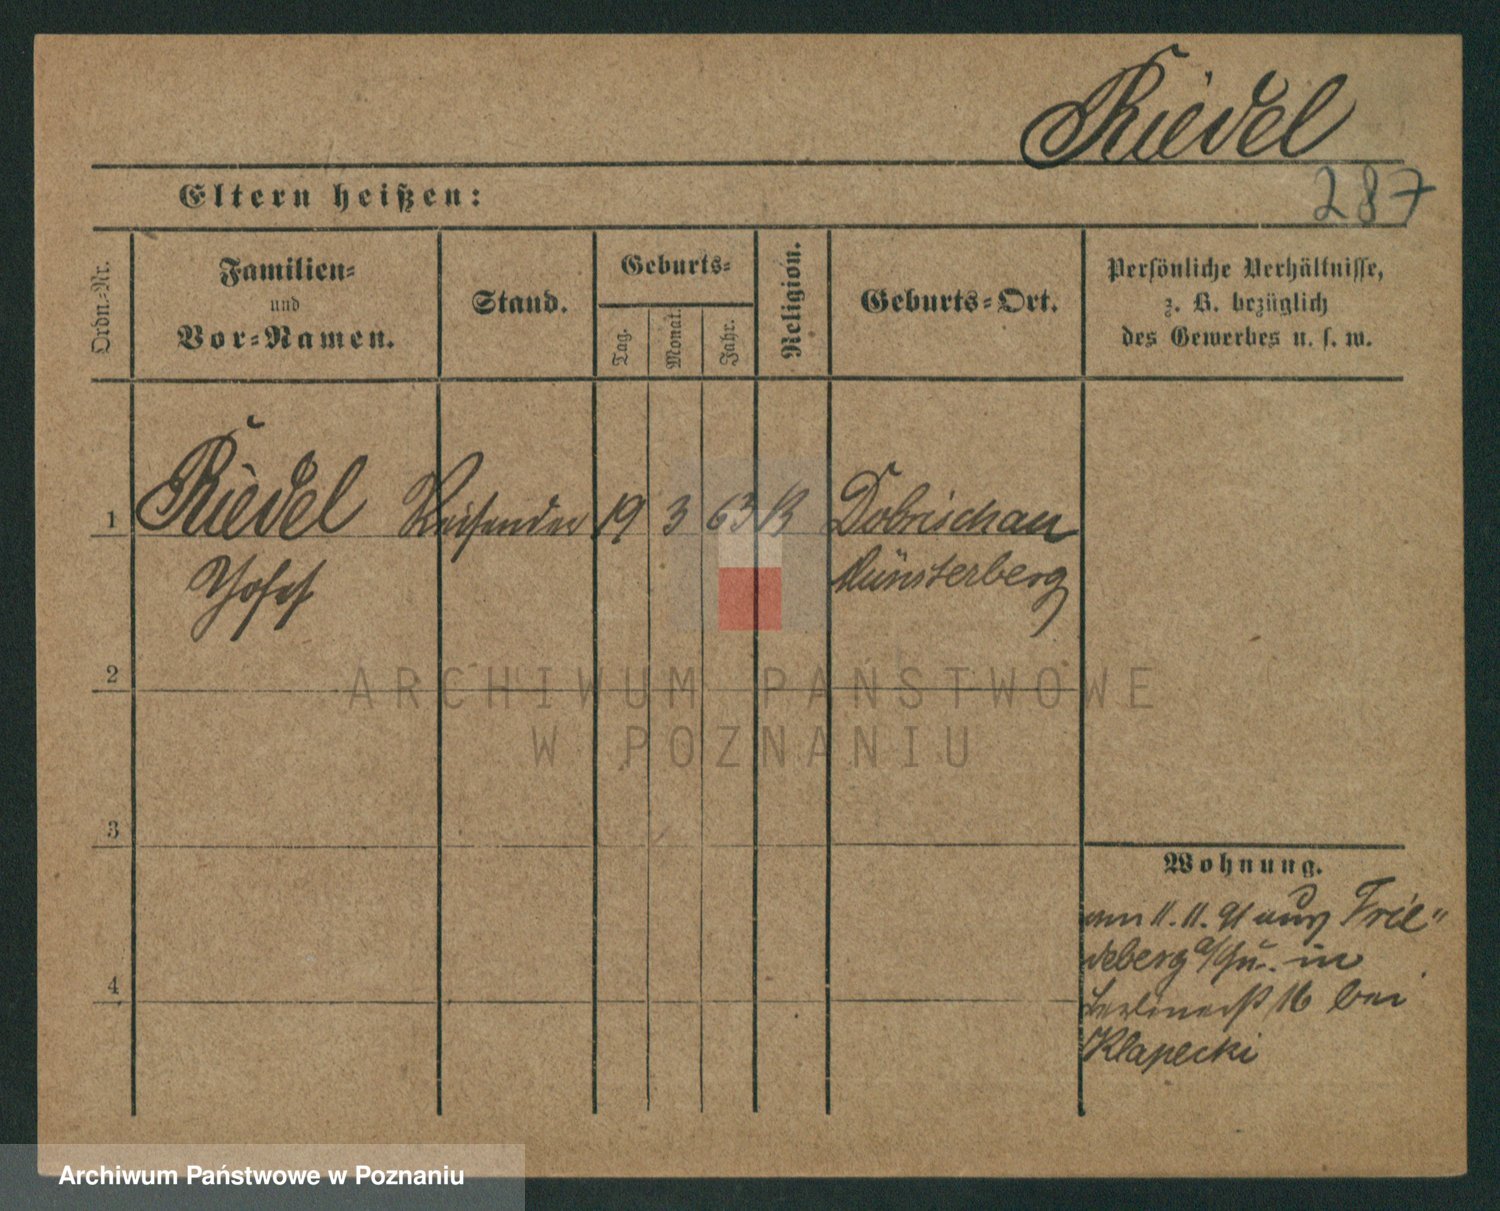 Riedel
287
Eltern heißen:
Ordn.-Nr.
Familien-
und
Vor-Namen.
Stand.
Geburts-
Tag.
Monat.
Jahr.
Religion.
Geburts-Ort.
Persönliche Verhältnisse,
z. B. bezüglich
des Gewerbes u. s. w.
1 Riedel Reisender 19 3 63 Dobrischau
Josef Münsterberg
2
ARCHIWUM PAŃSTWOWE
W POZNANIU
3
Wohnung.
am 11.11. 91 aus Frie"
deberg a/Qu. in
Berlinerst 16 bei
4
Klapecki
Archiwum Państwowe w Poznaniu